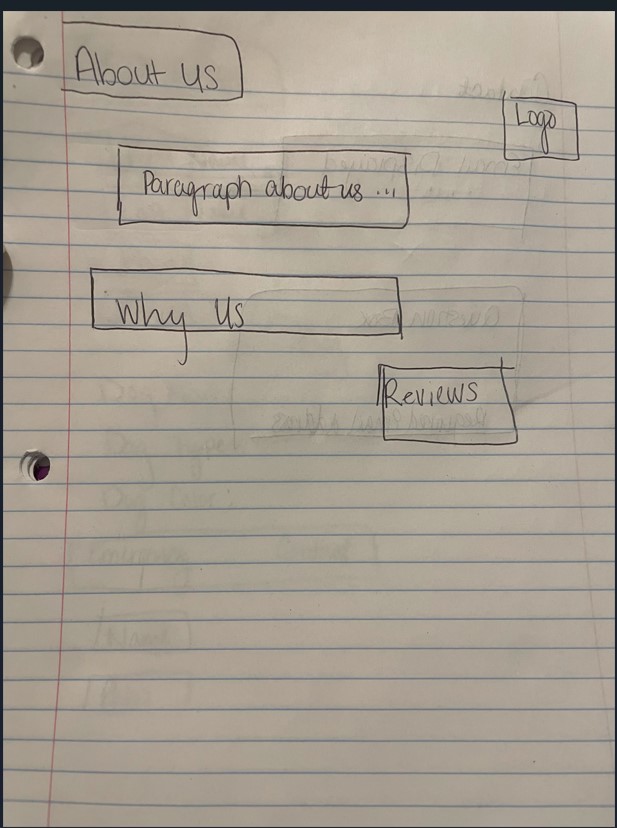 About us
Logo
Paragraph about us ...
Why us
Reviews